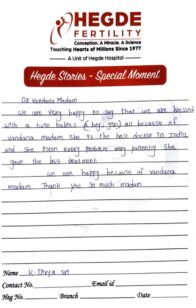 HEGDE
FERTILITY
Conception. A Miracle. A Science
Touching Hearts of Millions Since 1977
A Unit of Hegde Hospital
Hegde Stories - Special Moment
Dr Vandana Madam
we are very happy to say that we are blessed
with a two babies (boy, girl) all because of
vandana madam She is the best doctor in India
and she listen every problem very patiently She
gave the best treatment.
we are happy because of vandana
madam Thank you so much madam
Name K. Divya sri
Contact No. Email id
Heg No. Branch Date